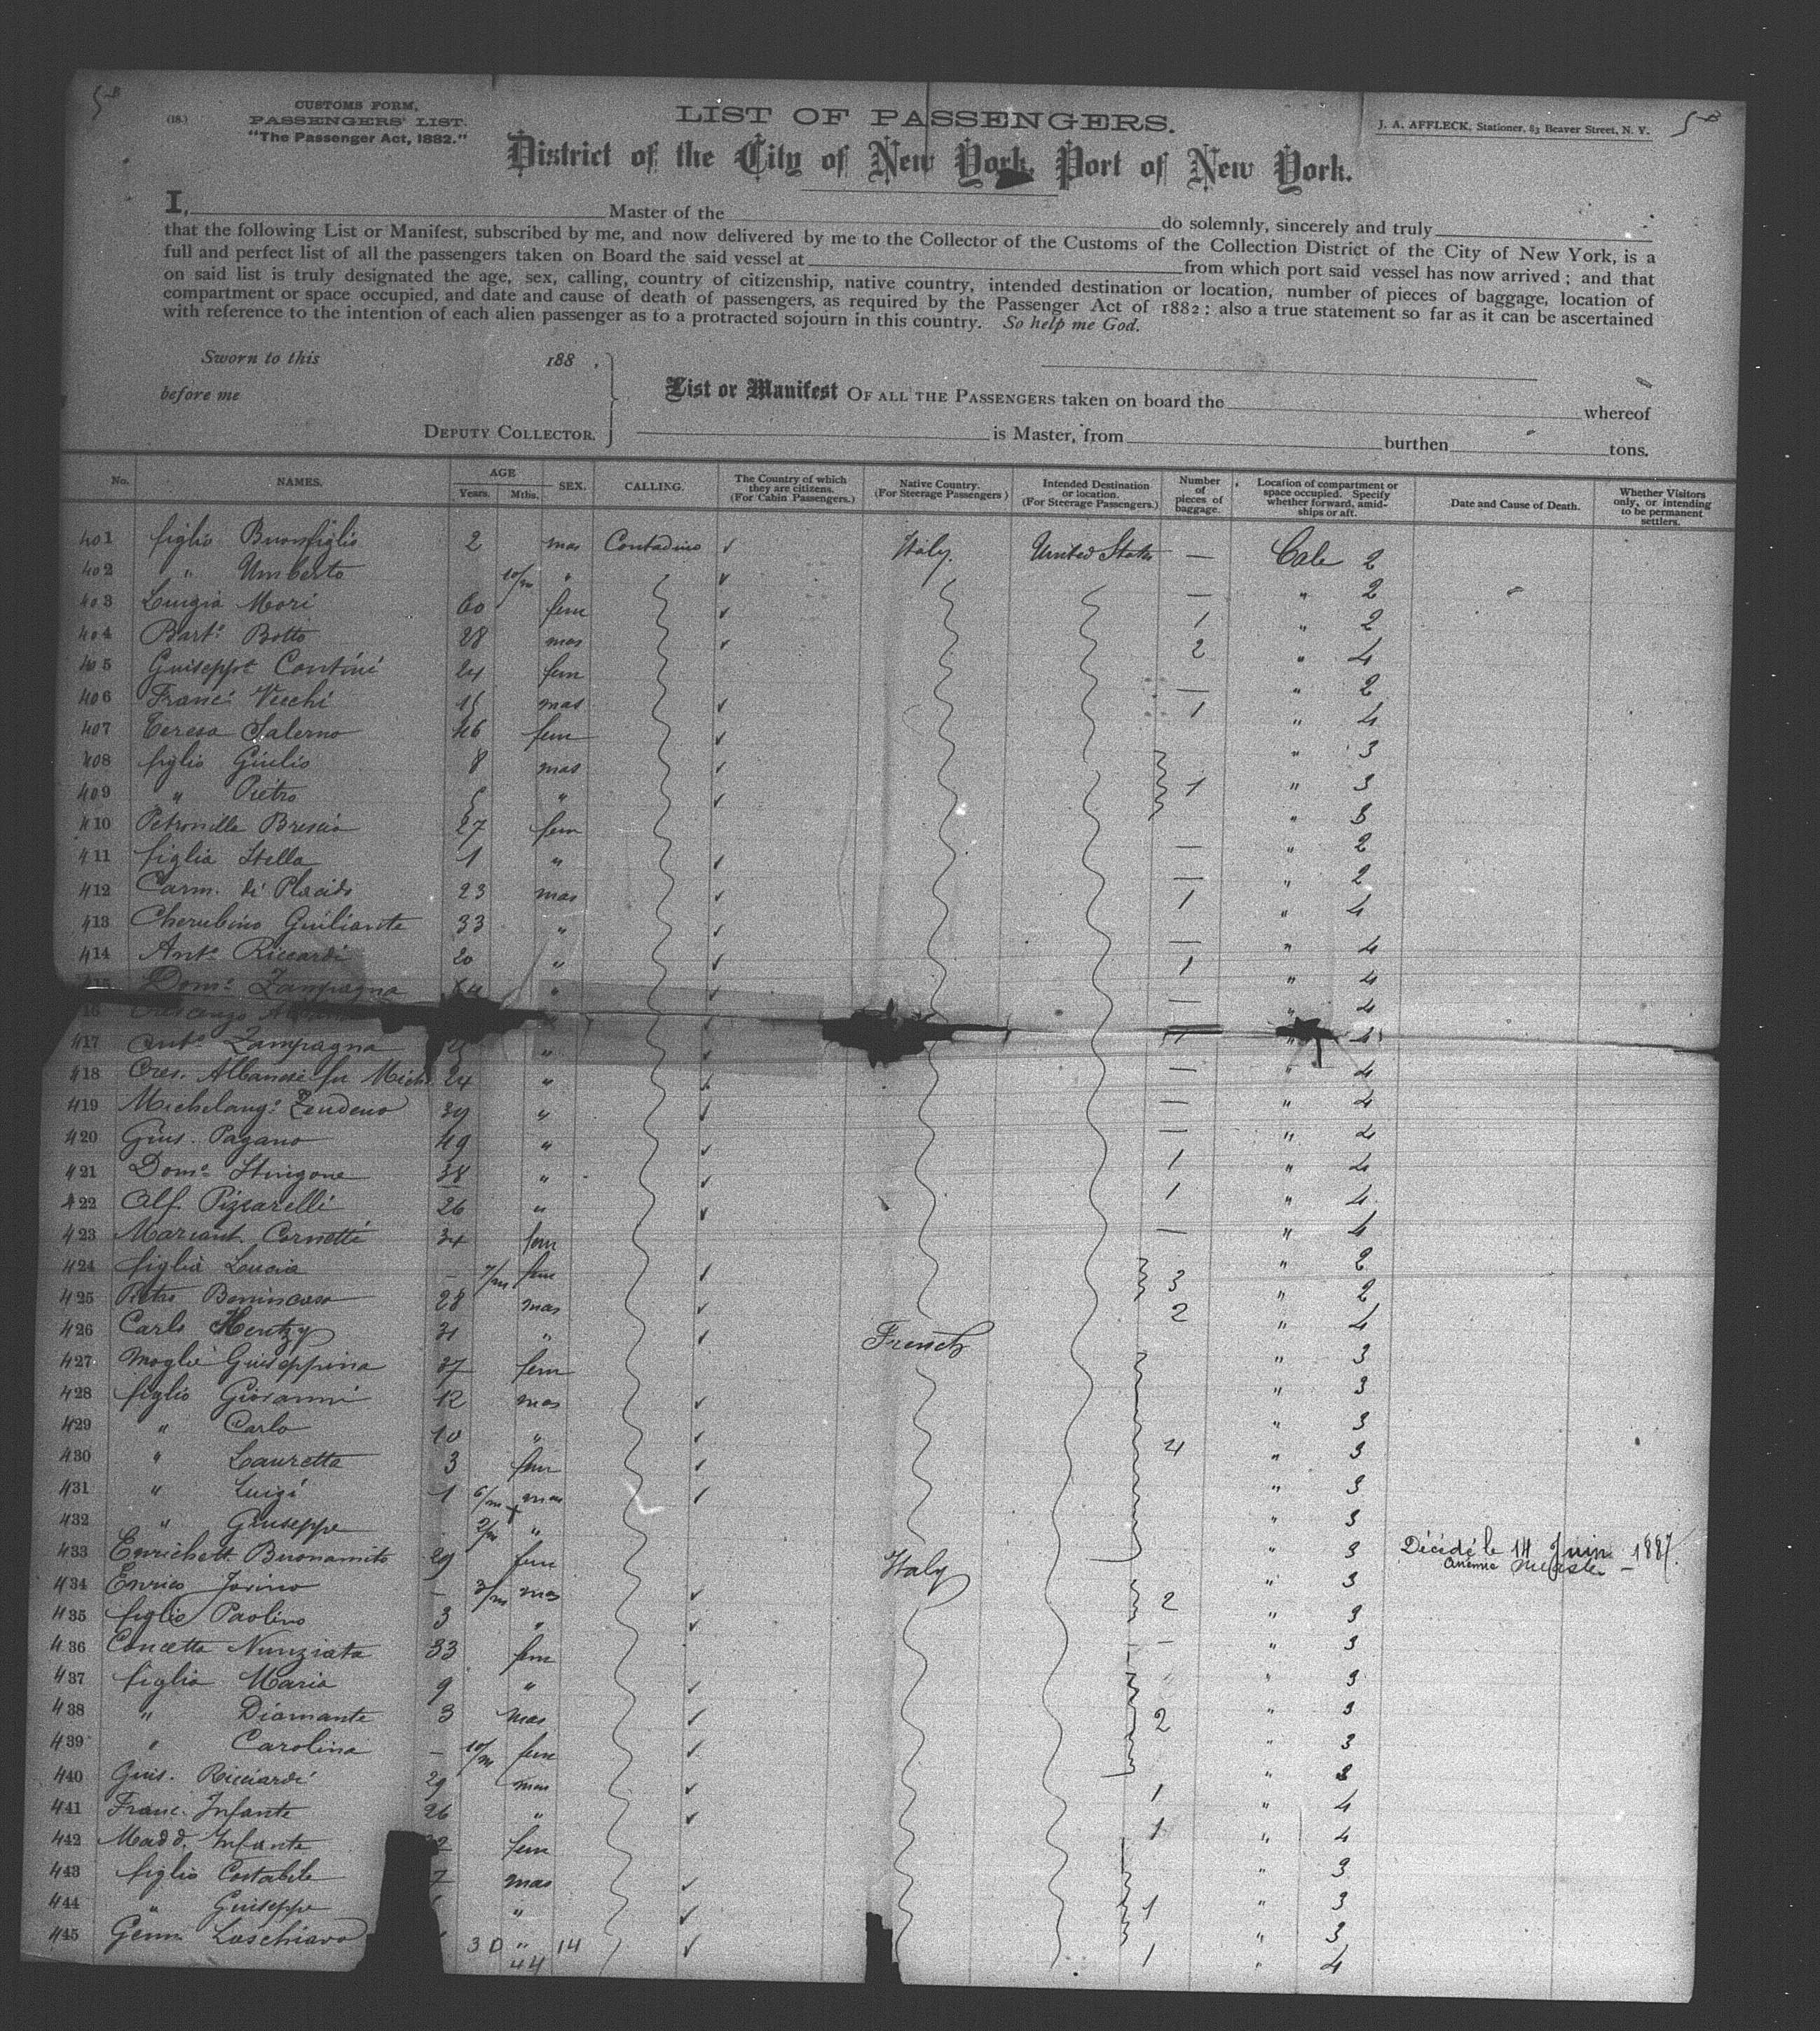 5-B
(18.)
CUSTOMS FORM,
PASSENGERS' LIST.
"The Passenger Act, 1882."
LIST OF PASSENGERS.
J. A. AFFLECK, Stationer, 83 Beaver Street, N. Y.
5-B
District of the City of New York, Port of New York.
I, Master of the do solemnly, sincerely and truly
that the following List or Manifest, subscribed by me, and now delivered by me to the Collector of the Customs of the Collection District of the City of New York, is a
full and perfect list of all the passengers taken on Board the said vessel at from which port said vessel has now arrived; and that
on said list is truly designated the age, sex, calling, country of citizenship, native country, intended destination or location, number of pieces of baggage, location of
compartment or space occupied, and date and cause of death of passengers, as required by the Passenger Act of 1882; also a true statement so far as it can be ascertained
with reference to the intention of each alien passenger as to a protracted sojourn in this country. So help me God.
Sworn to this 188 .
before me
DEPUTY COLLECTOR.
List or Manifest OF ALL THE PASSENGERS taken on board the whereof
is Master, from burthen tons.
No. NAMES. AGE Years. Mths. SEX. CALLING. The Country of which they are citizens. (For Cabin Passengers.) Native Country. (For Steerage Passengers) Intended Destination or location. (For Steerage Passengers.) Number of pieces of baggage. Location of compartment or space occupied. Specify whether forward, amidships or aft. Date and Cause of Death. Whether Visitors only, or intending to be permanent settlers.
401 figlio Buonfiglio 2 mas Contadino ✓ Italy. United States — Cale 2
402 " Umberto 10/m " ✓ — " 2
403 Luigia Mori 60 fem ✓ 1 " 2
404 Bart. Botto 28 mas ✓ 2 " 4
405 Guiseppe Contini 24 fem — " 2
406 Franc. Vecchi mas ✓ 1 " 4
407 Teresa Salerno 46 fem ✓ " 3
408 figlio Giulio 8 mas ✓ " 3
409 " Pietro 5 " ✓ 1 " 3
410 Petronilla Brescia 27 fem — " 2
411 figlia Stella 1 " ✓ — " 2
412 Carm. di Placido 23 mas ✓ 1 " 4
413 Cherubino Guiliante 33 " ✓ — " 4
414 Anto Riccardi 20 " ✓ 1 " 4
Domo Zampagna " ✓ — " 4
16 Crescenzo ✓
417 Anto Zampagna " ✓
418 Cres. Albanese fu Mich. 24 " ✓ — " 4
419 Michelang. 39 " ✓ — " 4
420 Gius. Pagano 49 " ✓ — " 4
421 Domo Stingone 38 " ✓ 1 " 4
422 Alf. Pizzarelli 26 " ✓ 1 " 4
423 Mariant. Cornetti 34 fem — " 4
424 figlia Lucia — 7/m fem ✓ 3 " 2
425 Pietro Benincasa 28 mas ✓ 2 " 2
426 Carlo Hentzy 31 " ✓ French " 4
427 Moglie Guiseppina 37 fem " 3
428 figlio Giovanni 12 mas ✓ " 3
429 " Carlo 10 " ✓ " 3
430 " Lauretta 3 fem ✓ 4 " 3
431 " Luigi 1 6/m mas ✓ " 3
432 " Giuseppe 2/m " " 3
433 Enrichett. Buonamito 29 fem Italy " 3 Décédé le 14 Juin 1887.
434 Enrico Jovino — 3/m mas ✓ " 3
435 figlio Paolino 3 " ✓ 2 " 3
436 Concetta Nunziata 33 fem — " 3
437 figlia Maria 9 " ✓ " 3
438 " Diamante 3 mas ✓ 2 " 3
439 " Carolina — 10/m fem ✓ " 3
440 Guis. Ricciardi 29 mas ✓ 1 " 3
441 Franc. Infante 26 " ✓ 1 " 4
442 Madd. Infante fem " 4
443 figlio Costabile 7 mas ✓ " 3
444 " Guiseppe " ✓ 1 " 3
445 Genn. Loschiavo 30 " 14 ✓ 1 " 4
44